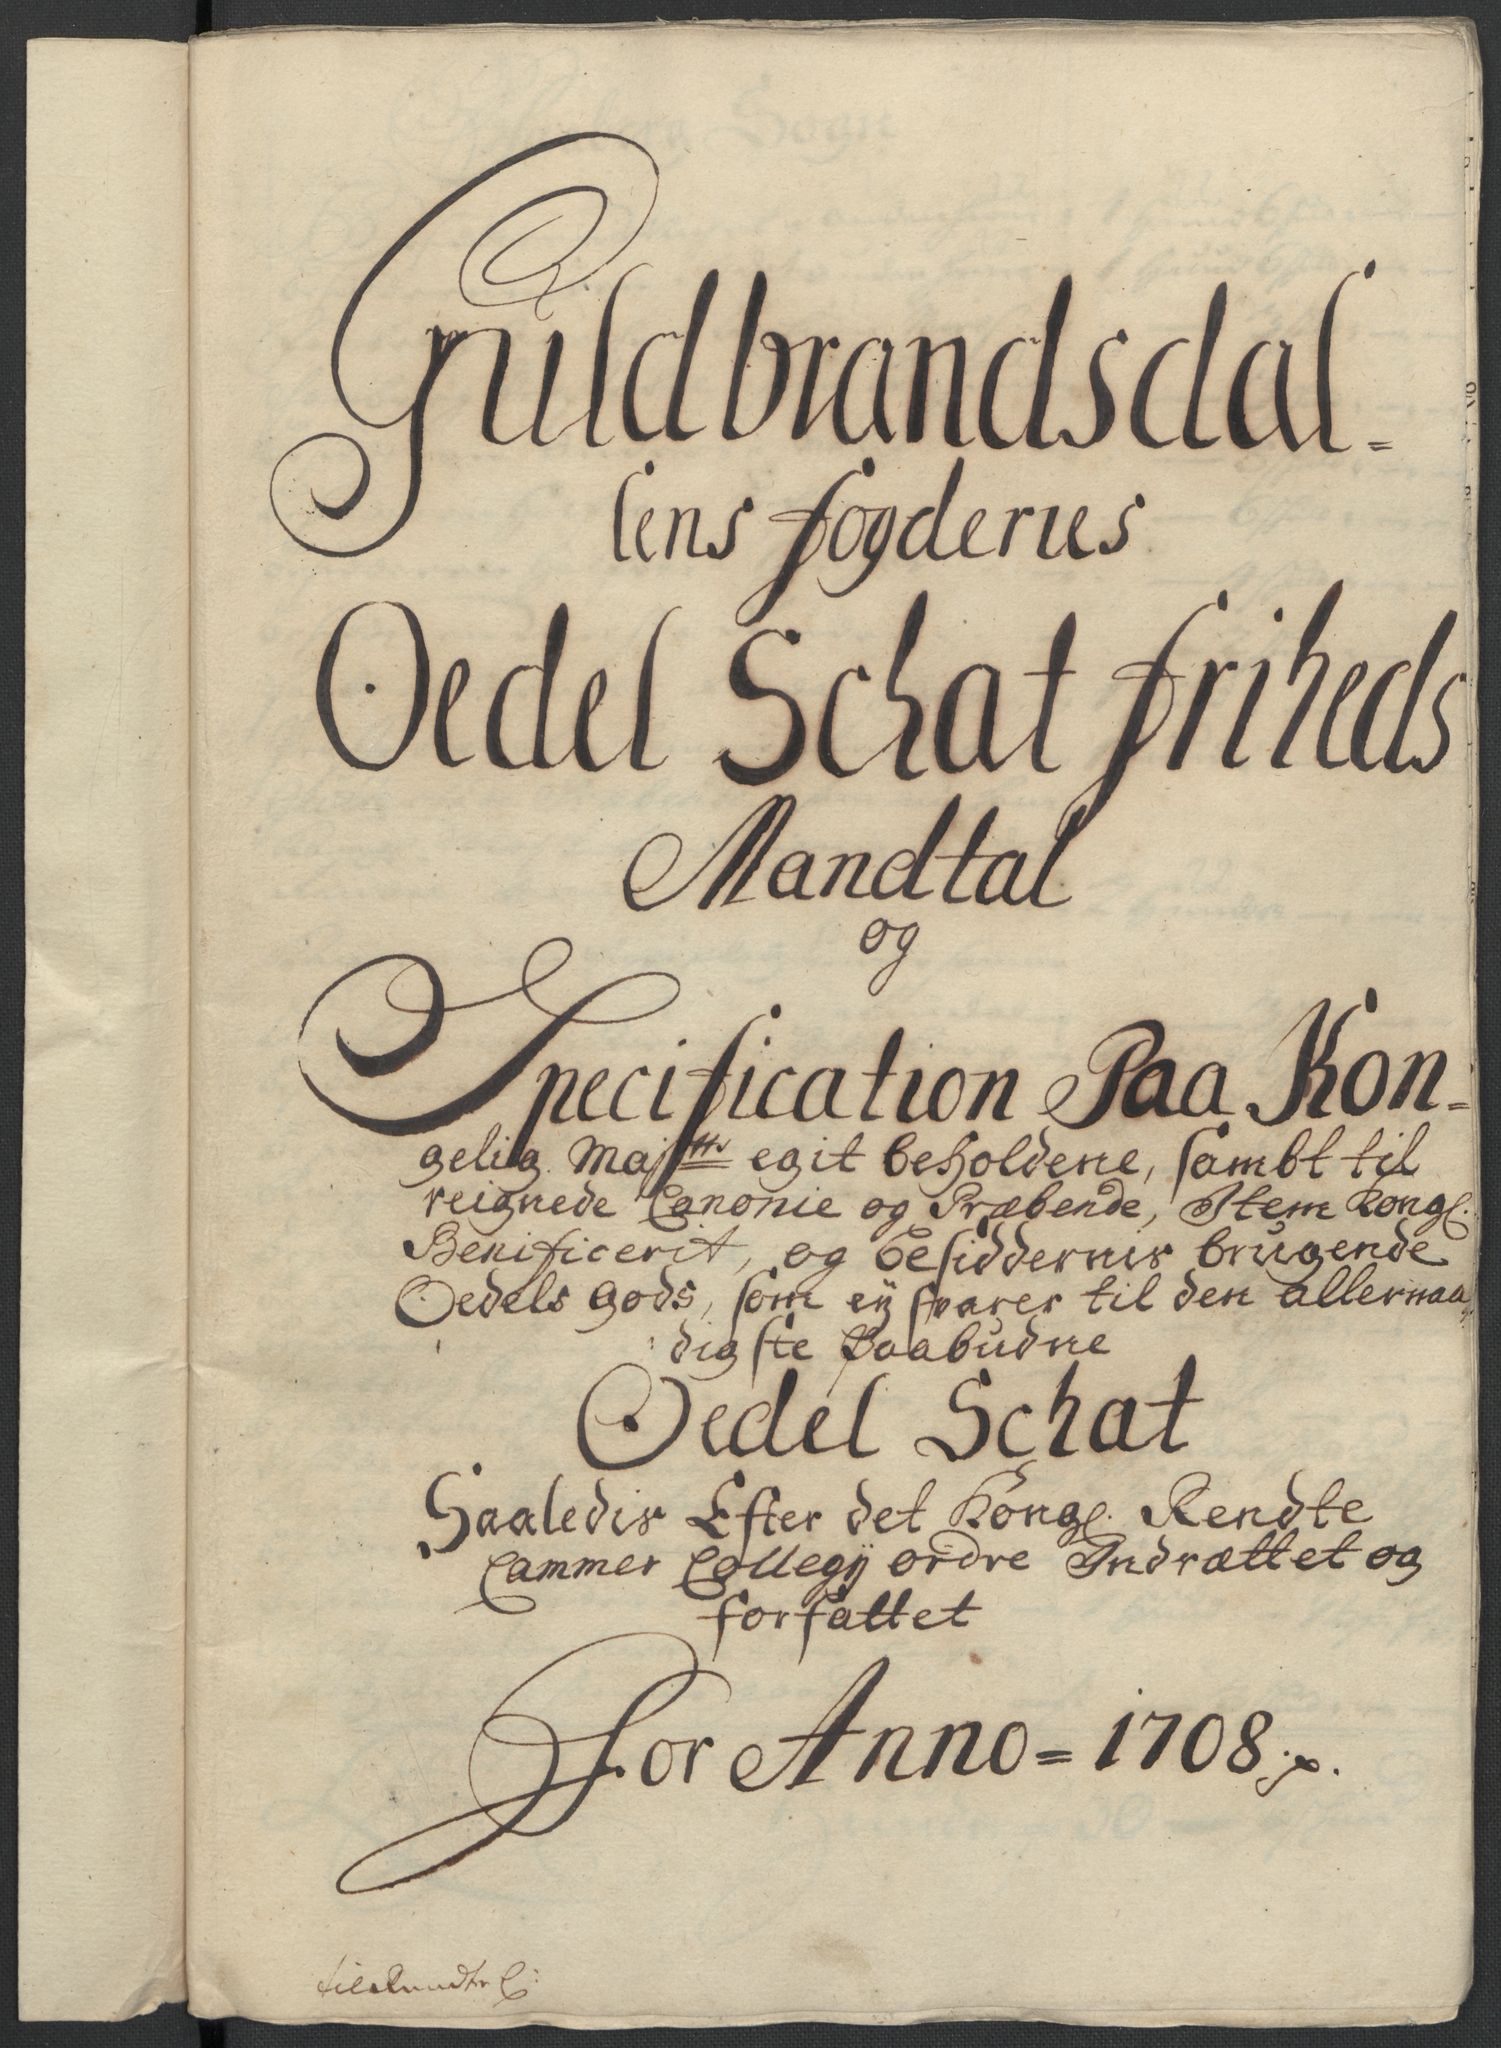 Guldbrandsdal=
lens fogderies
Oedel Schat friheds
Mandtal
og
Specification Paa Kon=
gelig Maj:tts egit beholdene, sambt til
reignede Canonie og Præbende, Item Kongl.
Benificerit, og besiddernis brugende
Oedels gods, som eÿ svarer til den allernaa
digste Paabudne
Oedel Schat
Saaledis Efter det Kongl. Rendte
Cammer Collegÿ ordre Indrættet og
forfattet
For Anno = 1708